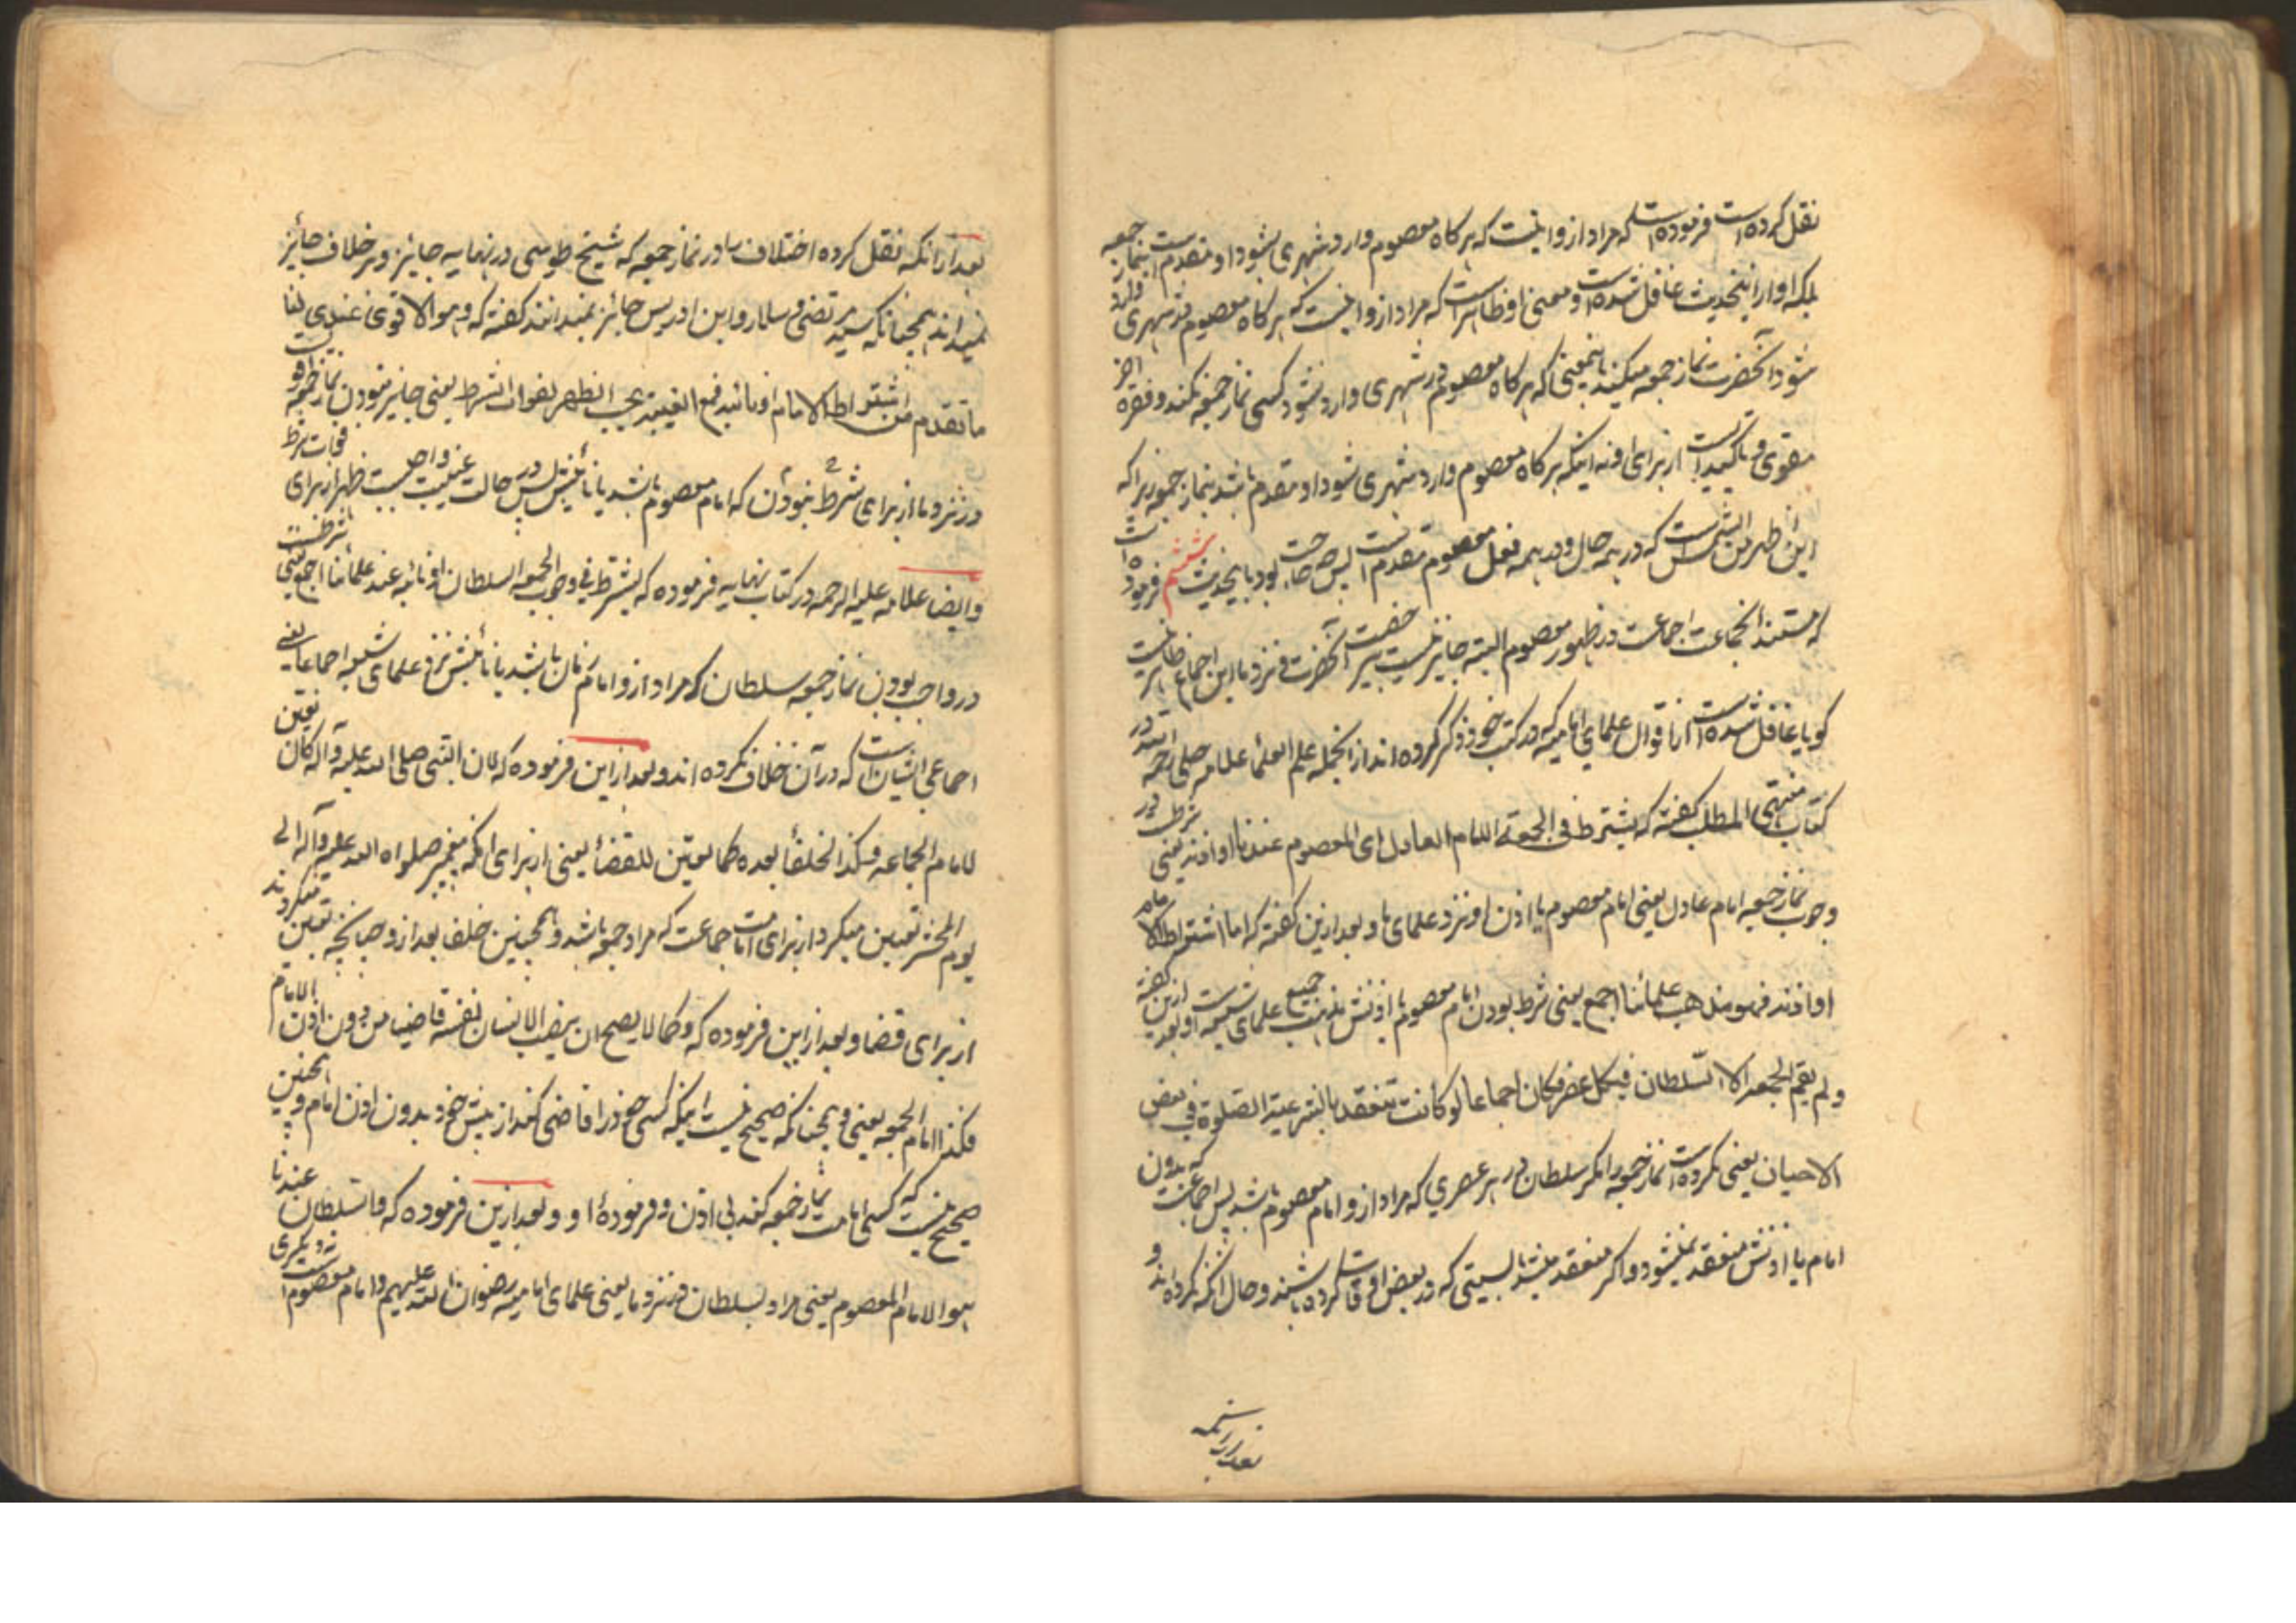 نقل کرده است فرموده است که مراد ازو اینست که هر کاه معصوم وارد شهری بشود او مقدم است بنماز جمعه
بلکه او از اینحدیث غافل شده است و معنی او ظاهر است که مراد ازو اینست که هر کاه معصوم در شهری وارد
شود آنحضرت نماز جمعه میکنند باینمعنی که هر کاه معصوم در شهری وارد نشود کسی نماز جمعه نکند و فقره اخر
مقوی و تاکید است از برای او نه اینکه هر کاه معصوم وارد شهری شود او مقدم باشد بنماز جمعه زیرا که
این اظهر من الشمس است که در همه حال و در همه فعل معصوم مقدم است پس چه حاجت بود باینحدیث ششم فرموده است
که مستند انجماعت اجماعست در ظهور معصوم البته جایز نیست بی رخصت آنحضرت و نزد ما این اجماع ظاهر نیست
کویا غافل شده است از اقوال علمای امامیه که در کتب خود ذکر کرده اند از انجمله علم العلما علامه حلی رحمه الله در
کتاب منتهی المطلب کفته که یشترط فی الجمعة الامام العادل ای المعصوم عندنا او اذنه یعنی شرطست در
وجوب نماز جمعه امام عادل یعنی امام معصوم یا اذن او نزد علمای ما و بعد ازین کفته که اما اشتراط الامام
او اذنه فهو مذهب علمائنا اجمع یعنی شرط بودن امام معصوم یا اذنش مذهب جمیع علمای شیعه است و بعد ازین کفته
و لم یقم الجمعه الا السلطان فی کل عصر فکان اجماعا لو کانت تنعقد بالشرعیة الصلوة فی بعض
الاحیان یعنی نکرده است نماز جمعه را مکر سلطان در هر عصری که مراد ازو امام معصوم باشد پس اجماعست که بدون
امام یا اذنش منعقد نمیشود و اکر منعقد میشد بایستی که در بعض اوقات کرده باشند و حال آنکه نکرده اند و
بعد از آنکه نقل کرده اختلاف ما در نماز جمعه که شیخ طوسی در نهایه جایز و در خلاف جائز
نمیداند همچنانکه سید مرتضی و سلار و ابن ادریس جائز نمیدانند کفته که و هو الاقوی عندی لنا
ما تقدم من اشتراط الامام او نائبه فمع الغیبة یجب الظهر لفوات الشرط یعنی جایز نبودن نماز جمعه
در نزد ما از برای شرط نبودن که امام معصوم باشد یا نائبش پس در حالت غیبت واجبست ظهر از برای فوات شرط
و ایضا علامه علیه الرحمه در کتاب نهایه فرموده که یشترط فی وجوب الجمعه السلطان او نائبه عند علمائنا اجمع یعنی شرطست
در واجب بودن نماز جمعه سلطان که مراد ازو امام زمان باشد یا نائبش نزد علمای شیعه اجماعا یعنی
اجماعی ایشان است که در آن خلاف نکرده اند و بعد ازین فرموده که لان النبی صلی الله علیه و آله کان یعین
لامام الجماعه و کذا الخلفا بعده کما یعین للقضا یعنی از برای آنکه پیغمبر صلواه الله علیه و آله الی
یوم المحشر تعیین میکرد از برای امامت جماعت که مراد جمعه باشد و همچنین خلفا بعد ازو چنانچه تعیین میکردند
از برای قضا و بعد ازین فرموده که و کما لا یصح ان ینصب الانسان نفسه قاضیا من دون اذن الامام
فکذا امام الجمعه یعنی و همچنانکه صحیح نیست اینکه کسی خود را قاضی کند از پیش خود بدون اذن امام و همچنین
صحیح نیست که کسی امامت نماز جمعه کند بی اذن و فرمودۀ او و بعد ازین فرموده که و السلطان عندنا
هو الامام المعصوم یعنی مراد بسلطان در نزد ما یعنی علمای امامیه رضوان الله علیهم امام معصوم است نه دیکری